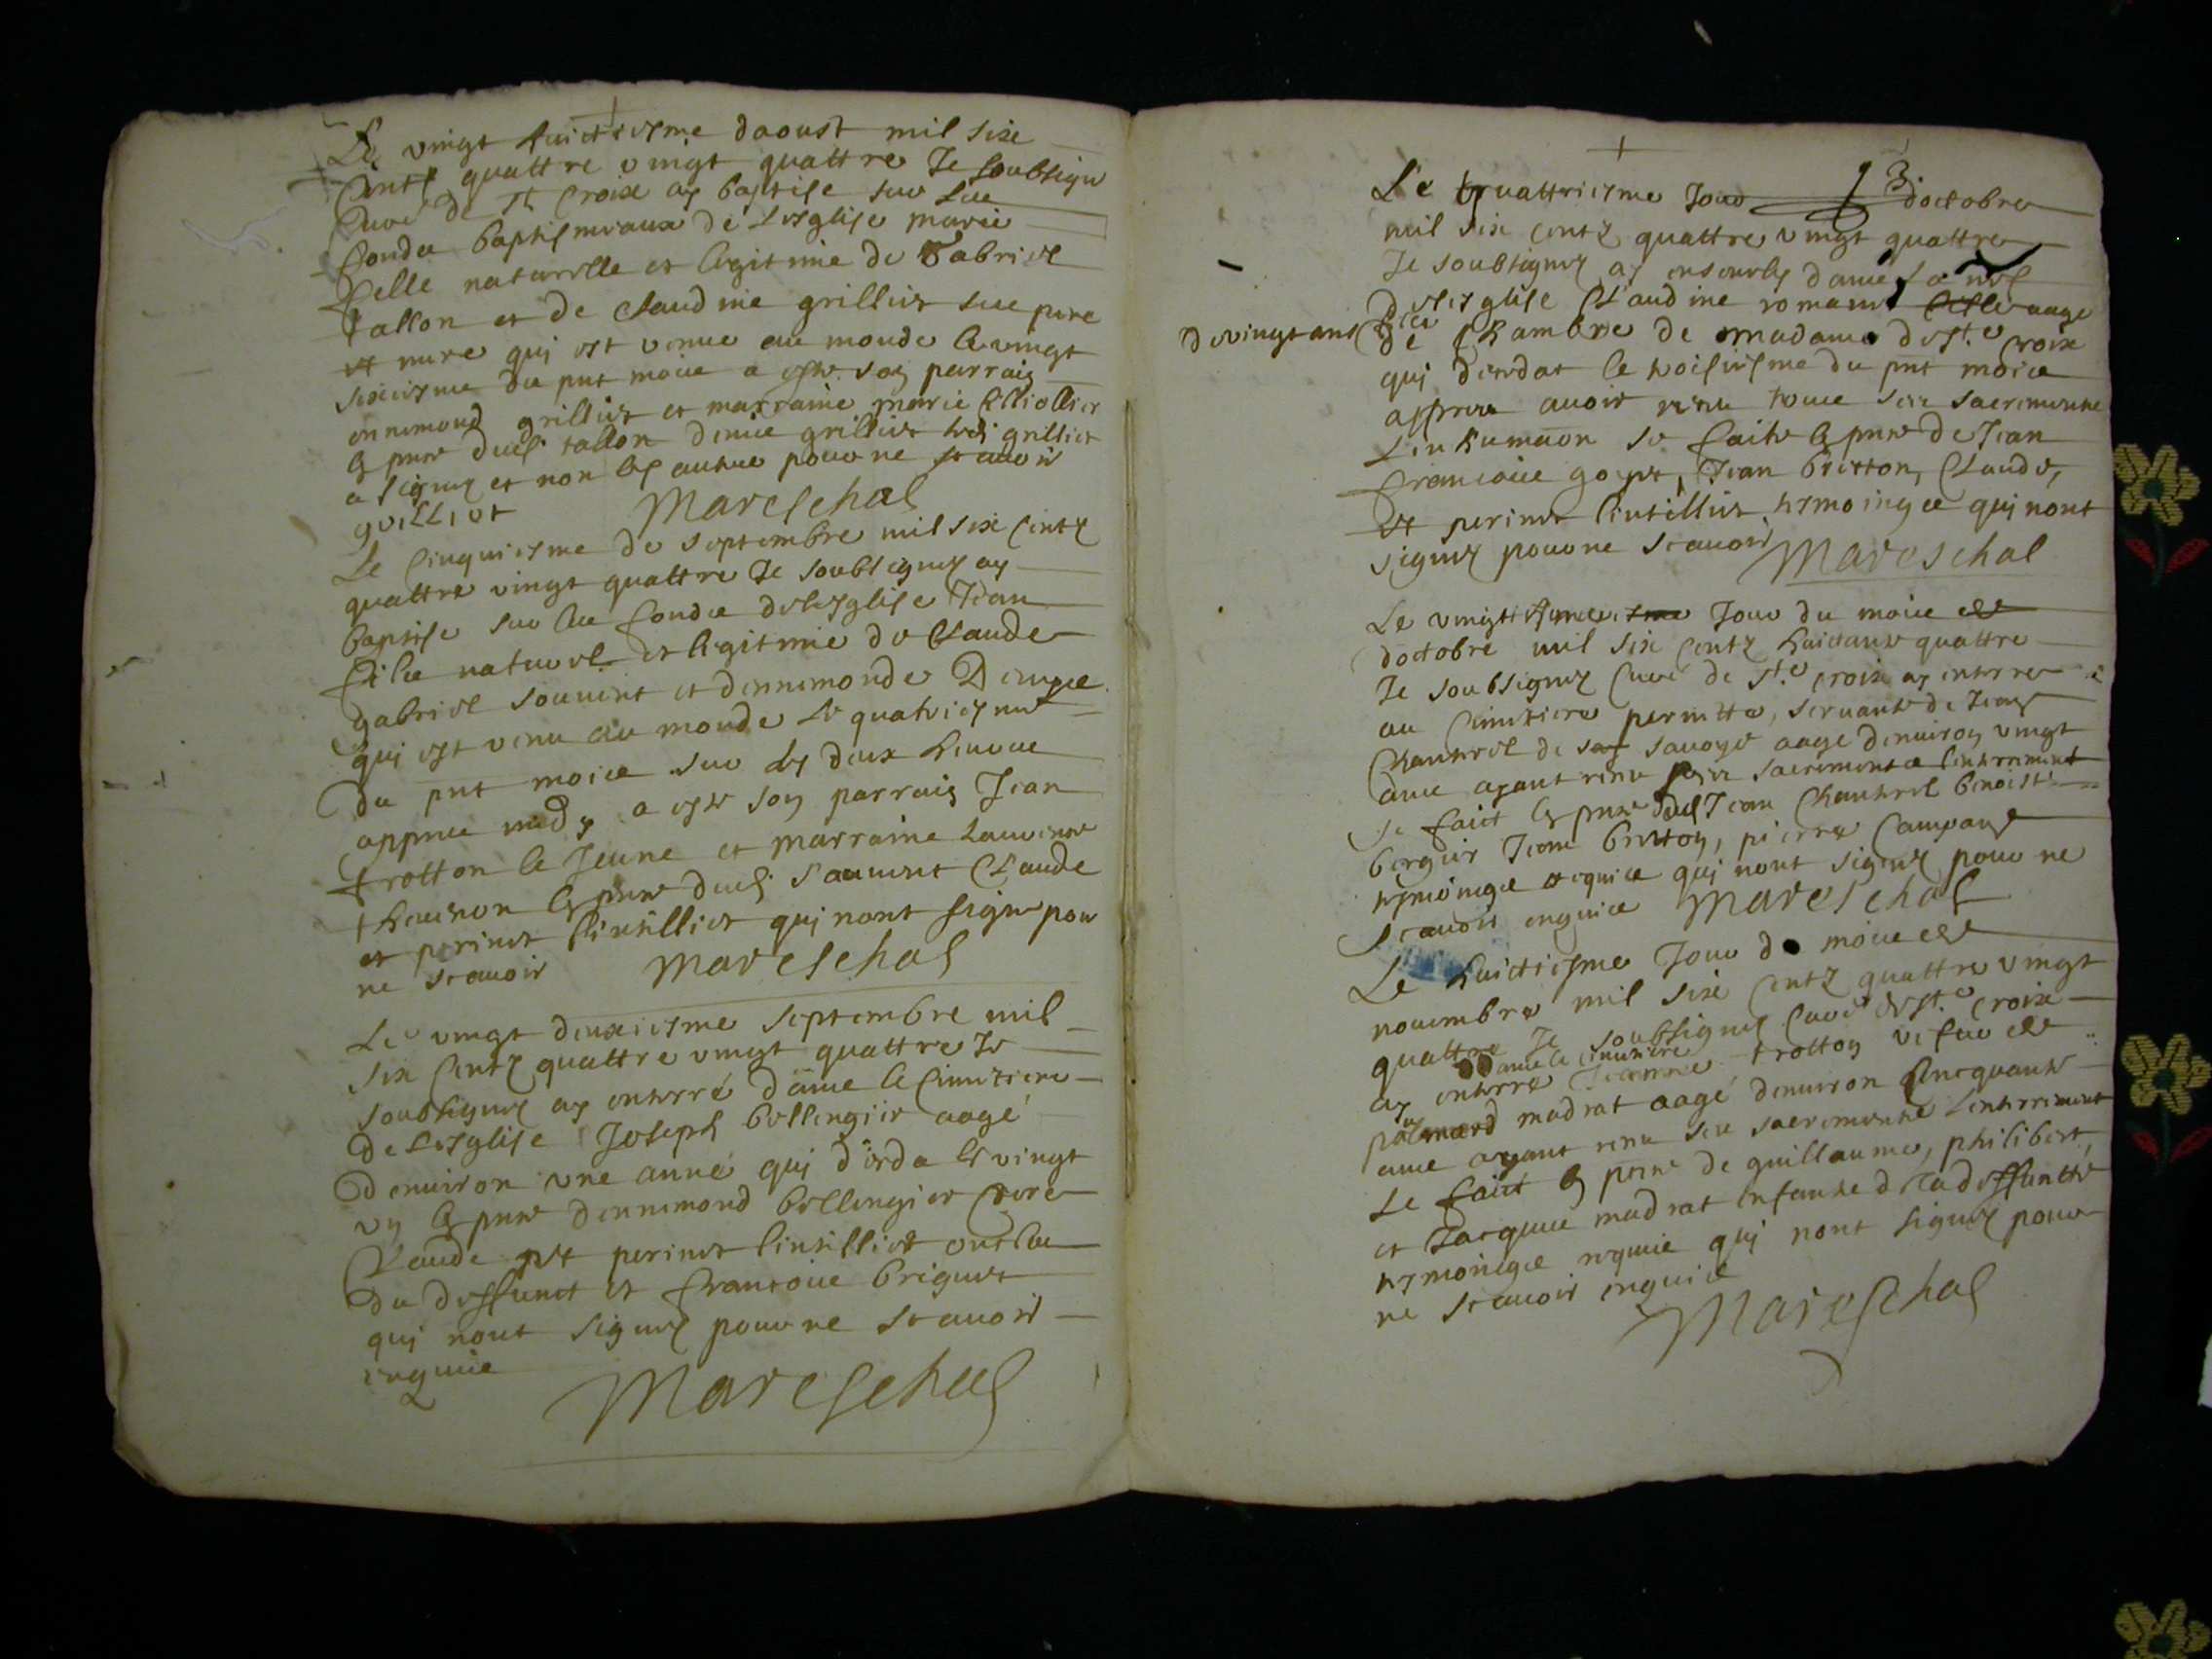 Le vingt huictiesme daoust mil six
Centz quattre vingt quattre Je soubsigne
Curé de Ste Croix ay baptise sur Les
fonds baptismeaux de Lesglise marie
felle naturelle et legitime de Gabriel
tallon et de Claudine grilliet sue pere
et mere qui est venue au monde le vingt
sixiesme du pnt mois a este son parrain
ennemond grilliet et marraine marie
En pnce dud tallon denis grilliet grilliet
a signez et non les autres pour ne scauoir
grilliet Mareschal
Le Cinquiesme de septembre mil six Centz
quattre vingt quattre Je soubsignez ay
baptise sur les fonds de lesglise Jean
fils naturel et legitime de Claude
gabriel souuent et dennemonde
qui est venu au monde Le quatriesme
du pnt mois sur les deux heures
appres midy a este son parrain Jean
trotton le Jeune et marraine Laurence
En pnce dud Claude
et perinet lintilliet qui nont signe pour
ne scauoir Mareschal
Le vingt deuxiesme septembre mil
six Centz quattre vingt quattre Je
soubsignez ay enterré dans le Cimetiere
de Lesglise Joseph bellengier aagé
denuiron une anné qui déceda le vingt
un En pnce dennemond bellengier frere
Claude et perinet lintilliet oncles
du deffunct et francois briguet
qui nont signez pour ne scauoir
enquis
Mareschal
13.
Le quattriesme Jour doctobre
mil six centz quattre vingt quattre
Je soubsignez ay enseuely dans la nef
de lesglise Claudine romans aage
de vingt ans fille de Chambre de Madame de Ste Croix
qui deceda le troisiesme du pnt mois
appres auoir receu tous ses sacrements
Linhumaon se faite En pnce de Jean
francois goyet, Jean britton, Claude,
et perinet lintilliet tesmoinges qui nont
signez pour ne scauoir Mareschal
Le vingt Jour du mois
doctobre mil six centz huictante quattre
Je soubsignez Curé de Ste Croix ay enterre
au Cimetiere pernette, seruante de Jean
Chanterel de sauoye aage denuiron vingt
ans ayant receu sacrements lenterrement
se faict En pnce dud Jean Chanterel benoist
bergier Jean britton, pierre Campane
tesmoinge requis qui nont signez pour ne
scauoir enquis Mareschal
Le huictiesme Jour du mois de
nouembre mil six Centz quattre vingt
quattre Je soubsignez Curé de Ste Croix
ay enterre dans le cimetiere Jeanne trotton vefue de
madrat aagé denuiron Cincquante
ans ayant receu ses sacrements Lenterrement
se faict En pnce de guillaume, philibert,
et Jacques madrat enfants de la deffuncte
tesmoinge requis qui nont signez pour
ne scauoir enquis
Mareschal